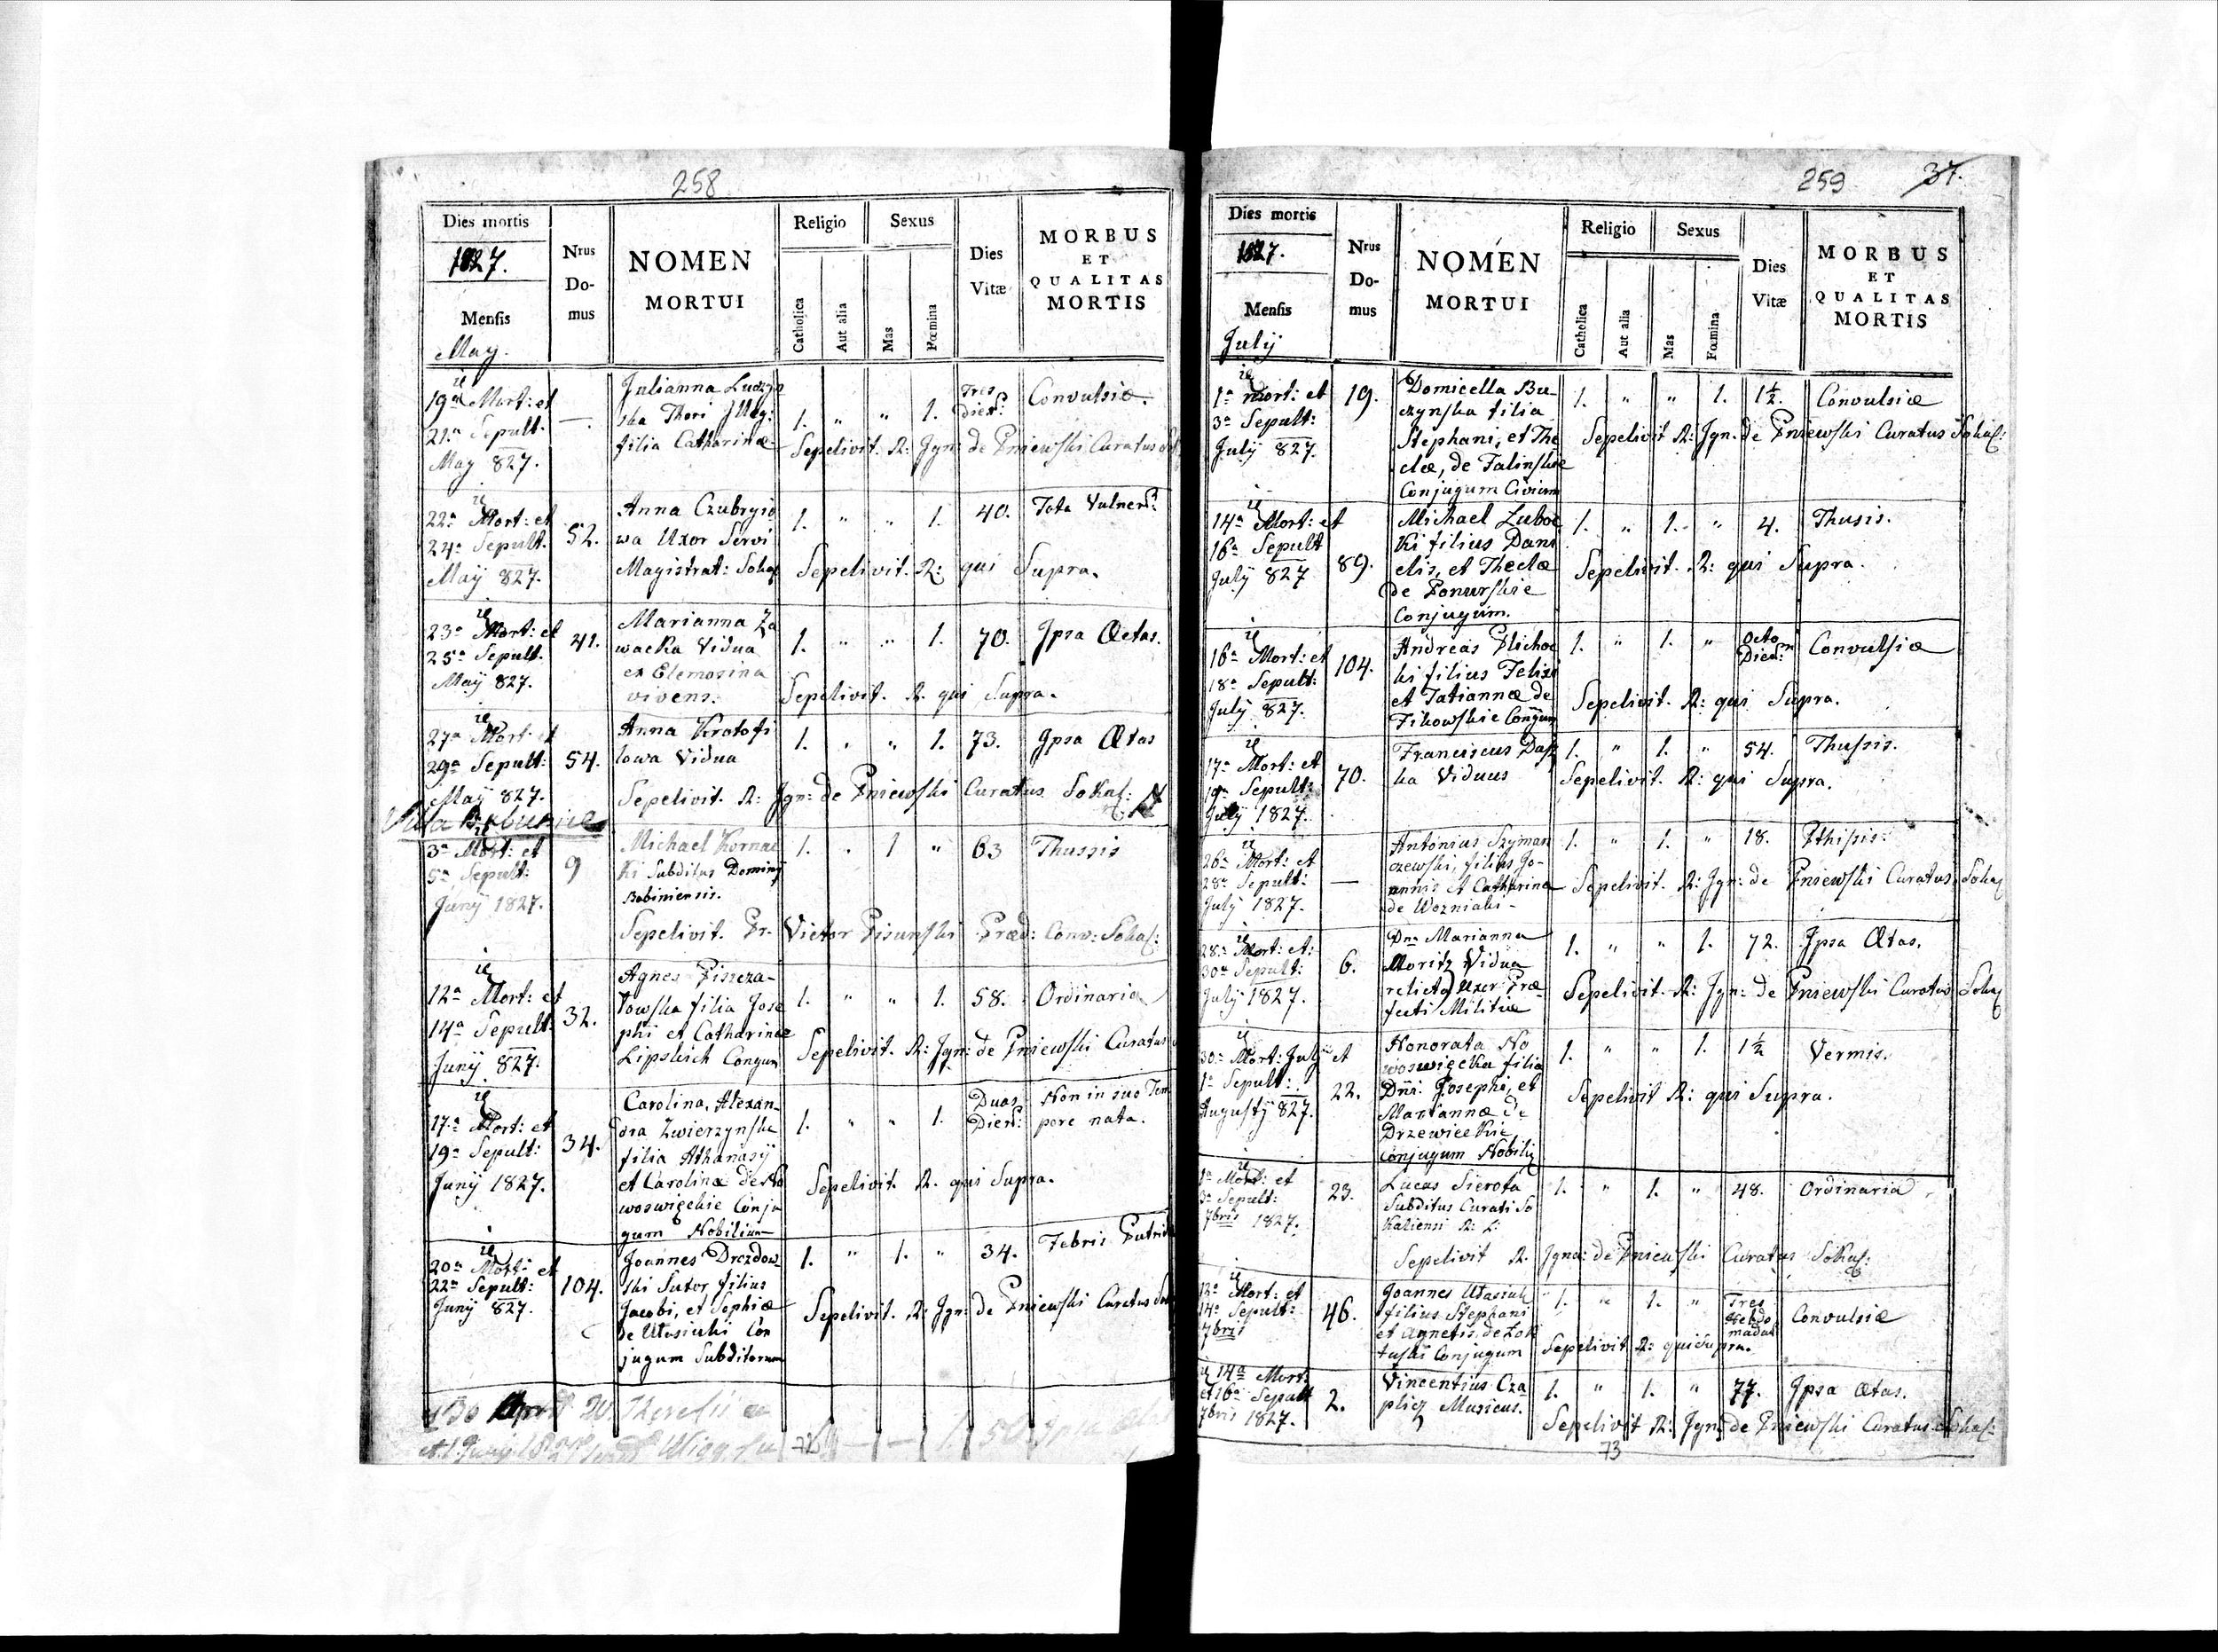 258
Dies mortis
1827.
Mensis
May.
Nrus
Do-
mus
NOMEN
MORTUI
Religio
Catholica
Aut alia
Sexus
Mas
Fœmina
Dies
Vitæ
MORBUS
ET
QUALITAS
MORTIS
19a Mort: et
21a Sepult.
May 827.
—.
Julianna
filia Catharinæ
1. " " 1.
Tres
Dier:
Convulsiæ.
Sepelivit. R: Jgn: de Pniewski Curatus
22a Mort: et
24a Sepult.
Maÿ 827.
52.
Anna Czubryio
wa Uxor Servi
Magistrat: Sokal
1. " " 1.
40.
Tota Vulner:
Sepelivit. R: qui Supra.
23a Mort: et
25a Sepult.
Maÿ 827.
41.
Marianna Za
wacka Vidua
ex Elemosina
vivens.
1. " " 1.
70.
Jpsa Ætas.
Sepelivit. R. qui Supra.
27a Mort: et
29a Sepult:
Maÿ 827.
54.
Anna Krotofi
lowa Vidua
1. " " 1.
73.
Jpsa Ætas
Sepelivit. R: Jgn: de Pniewski Curatus Sokal:
Villa
3a Mort: et
5a Sepult:
Junÿ 1827.
9
Michael Kornac
ki Subditus Dominÿ
Babiniensis.
1. " 1 "
63
Thussis
Sepelivit. Pr. Victor Pisunski Præd: Conv: Sokal:
12a Mort: et
14a Sepult:
Junÿ 827.
32.
Agnes Piszcza-
towska filia Jose
phi et Catharinæ
Lipskich Conjun
1. " " 1.
58.
Ordinaria
Sepelivit. R: Jgn: de Pniewski Curatus
17a Mort: et
19a Sepult:
Junÿ 1827.
34.
Carolina, Alexan-
dra Zwierzynska
filia Athanasÿ
et Carolinæ de No
woswięckie Conju
gum Nobilium
1. " " 1.
Duas
Dier:
Non in suo Tem
pore nata.
Sepelivit. R. qui Supra.
20a Mort: et
22a Sepult:
Junÿ 827.
104.
Joannes Drozdow
ski Sutor filius
Jacobi, et Sophiæ
de Utasiuki Con
jugum Subditorum
1. " 1. "
34.
Febris Putrid
Sepelivit. R: Jgn: de Pniewski Curatus
72
259
37.
Dies mortis
1827.
Mensis
Julÿ
Nrus
Do-
mus
NOMEN
MORTUI
Religio
Catholica
Aut alia
Sexus
Mas
Fœmina
Dies
Vitæ
MORBUS
ET
QUALITAS
MORTIS
1a Mort: et
3a Sepult:
Julÿ 827.
19.
Domicella Bu-
czynska filia
Stephani, et The
clæ, de Falinskie
Conjugum Civium
1. " " 1.
1½.
Convulsiæ
Sepelivit R: Jgn: de Pniewski Curatus Sokal:
14a Mort: et
16a Sepult
Julÿ 827
89.
Michael Zuboc
ki filius Dani
elis, et Theclæ
de Ponurskie
Conjugum.
1. " 1. "
4.
Thusis.
Sepelivit. R: qui Supra.
16a Mort: et
18a Sepult:
Julÿ 827.
104.
Andreas Plichoc
ki filius Felixi
et Tatiannæ de
Fikowskie Conjum
1. " 1. "
Octo
Dier:
Convulsiæ
Sepelivit. R: qui Supra.
17a Mort: et
19a Sepult:
Julÿ 1827.
70.
Franciscus Dasz
ka Viduus
1. " 1. "
54.
Thussis.
Sepelivit. R: qui Supra.
26a Mort: et
28a Sepult:
Julÿ 1827.
—
Antonius Szyman
czewski, filius Jo-
annis et Catharinæ
de Wozniaki
1. " 1. "
18.
Pthisis.
Sepelivit. R: Jgn: de Pniewski Curatus Sokal
28a Mort: et:
30a Sepult:
Julÿ 1827.
6.
Dna Marianna
Moritz Vidua
relicta Uxor Præ
fecti Militiæ
1. " " 1.
72.
Jpsa Ætas.
Sepelivit. R: Jgn: de Pniewski Curatus Sokal
30a Mort: Julÿ et
1a Sepult:
Augustÿ 827.
22.
Honorata No
woswięcka filia
Dni: Josephi, et
Mariannæ de
Drzewieckie
Conjugum Nobiliū
1. " " 1.
1½
Vermis.
Sepelivit R: qui Supra.
1a Mort: et
3a Sepult:
7bris 1827.
23.
Lucas Sierota
Subditus Curati So
kaliensi R: L:
1. " 1. "
48.
Ordinaria
Sepelivit R. Jgna: de Pniewski Curatus Sokal:
12a Mort: et
14a Sepult:
7bris
46.
Joannes Utasiuk
filius Stephani
et Agnetis de
Conjugum
1. " 1. "
Tres
Hebdo
madas
Convulsiæ
Sepelivit R: qui Supra.
14a Mort:
et 16a Sepult
7bris 1827.
2.
Vincentius Cza
plicz Musicus.
1. " 1. "
77.
Jpsa Ætas.
Sepelivit R: Jgn: de Pniewski Curatus Sokal:
73